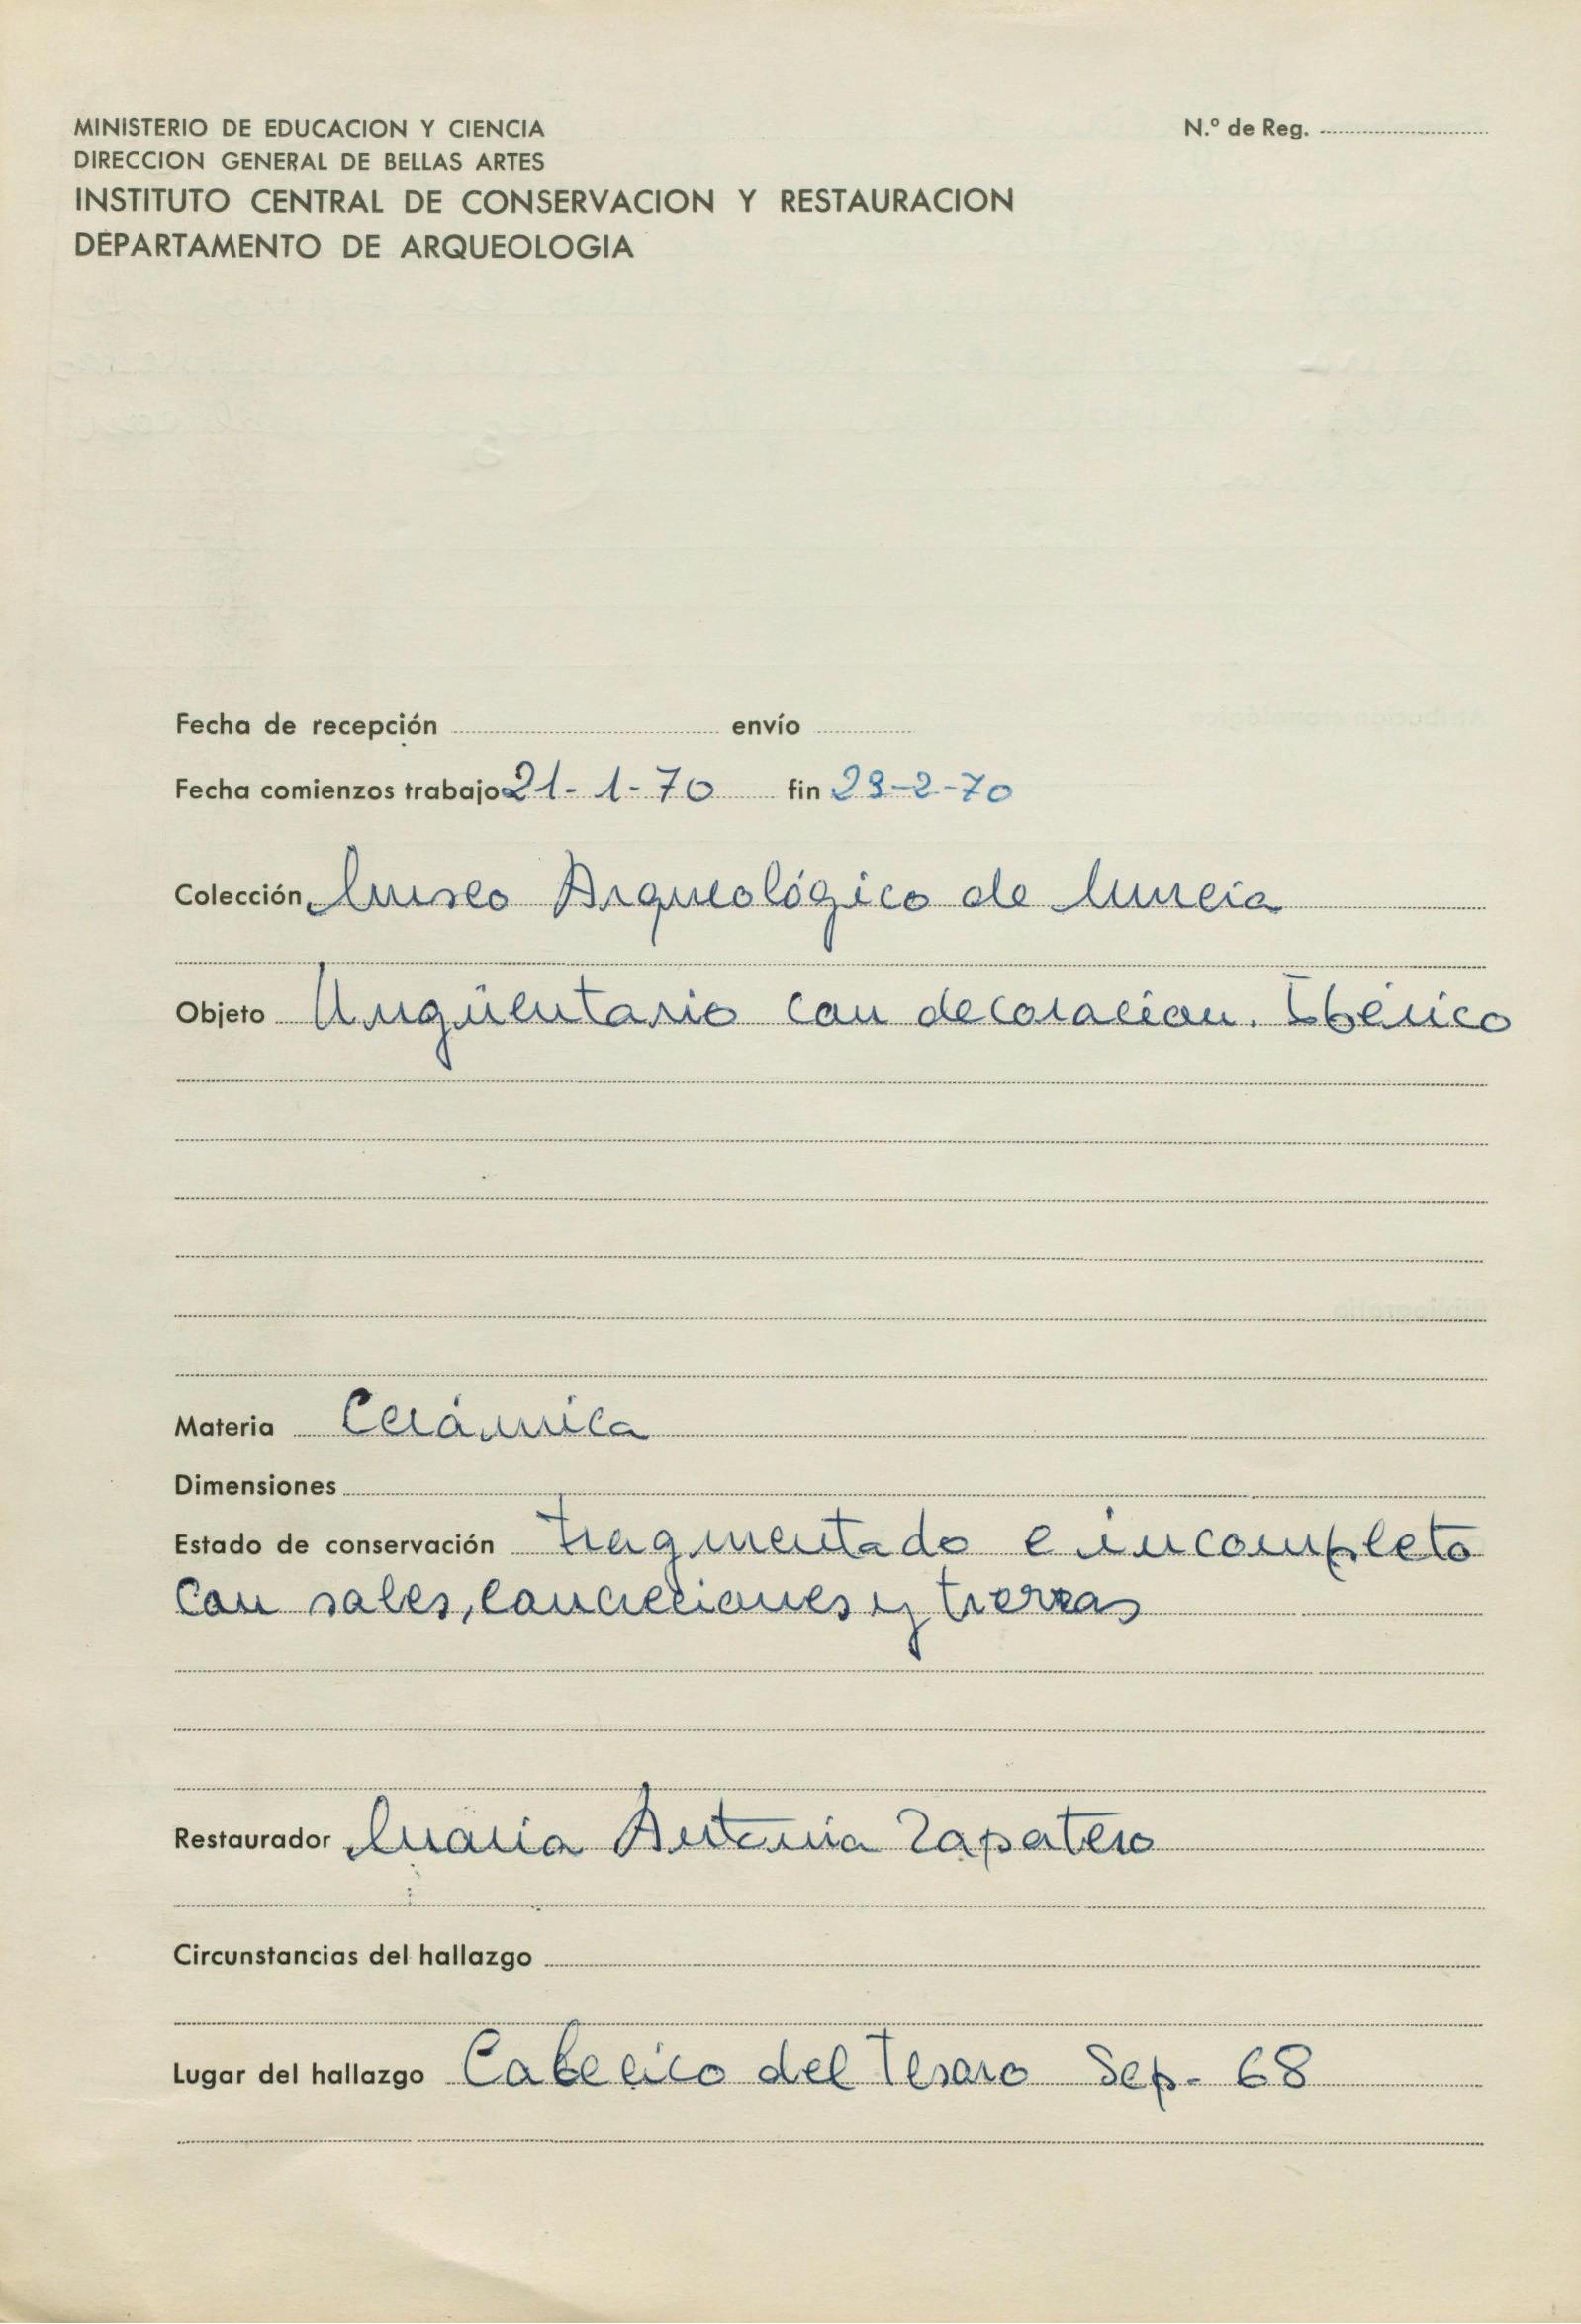 MINISTERIO DE EDUCACION Y CIENCIA
N.º de Reg.
DIRECCION GENERAL DE BELLAS ARTES
INSTITUTO CENTRAL DE CONSERVACION Y RESTAURACION
DEPARTAMENTO DE ARQUEOLOGIA
Fecha de recepción envío
Fecha comienzos trabajo 21-1-70 fin 23-2-70
Colección Museo Arqueológico de Murcia
Objeto Ungüentario con decoracion. Ibérico
Materia Cerámica
Dimensiones
Estado de conservación fragmentado e incompleto
con sales, concreciones y tierras
Restaurador Maria Antonia Zapatero
Circunstancias del hallazgo
Lugar del hallazgo Cabecico del Tesoro Sep. 68